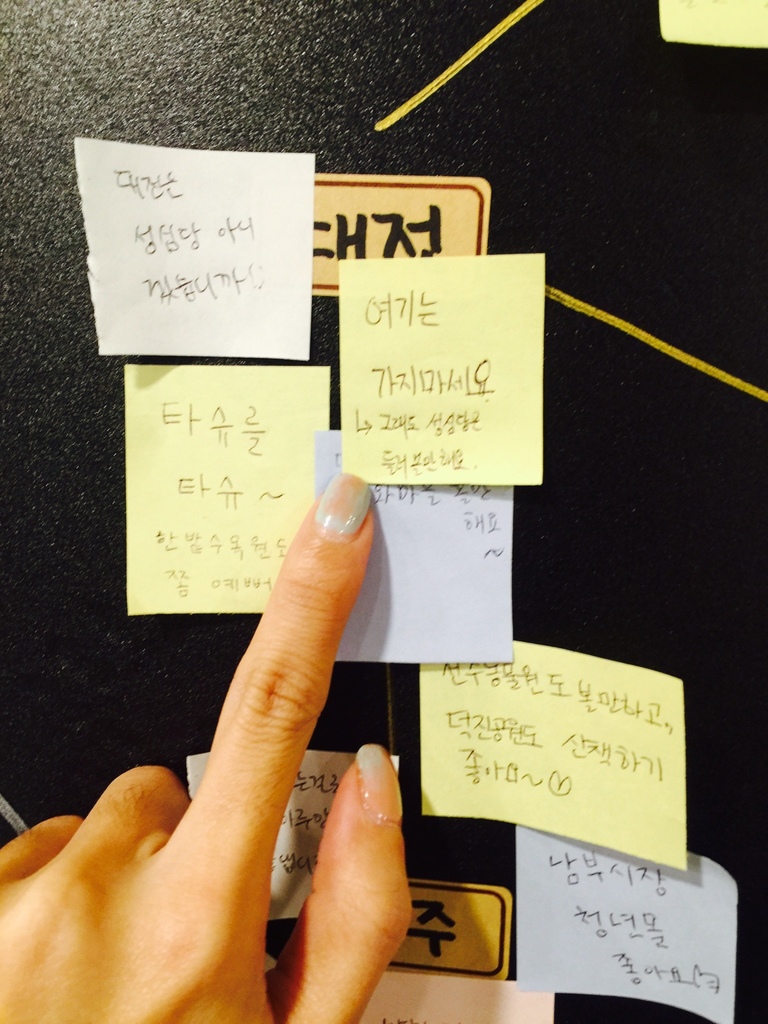 대전은
성심당 아니
겠습니까
대전
여기는
가지마세요
↳ 그래도 성심당은
들러볼만해요.
타슈를
타슈 ~
한밭수목원도
쫌 예뻐
볼만
해요
~
동물원도 볼만하고,,
덕진공원도 산책하기
좋아요~
는걸
주
남부시장
청년몰
좋아요